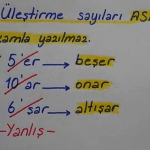 Üleştirme sayıları
yazılmaz.
5'er → beşer
10'ar → onar
6'şar → altışar
-Yanlış-